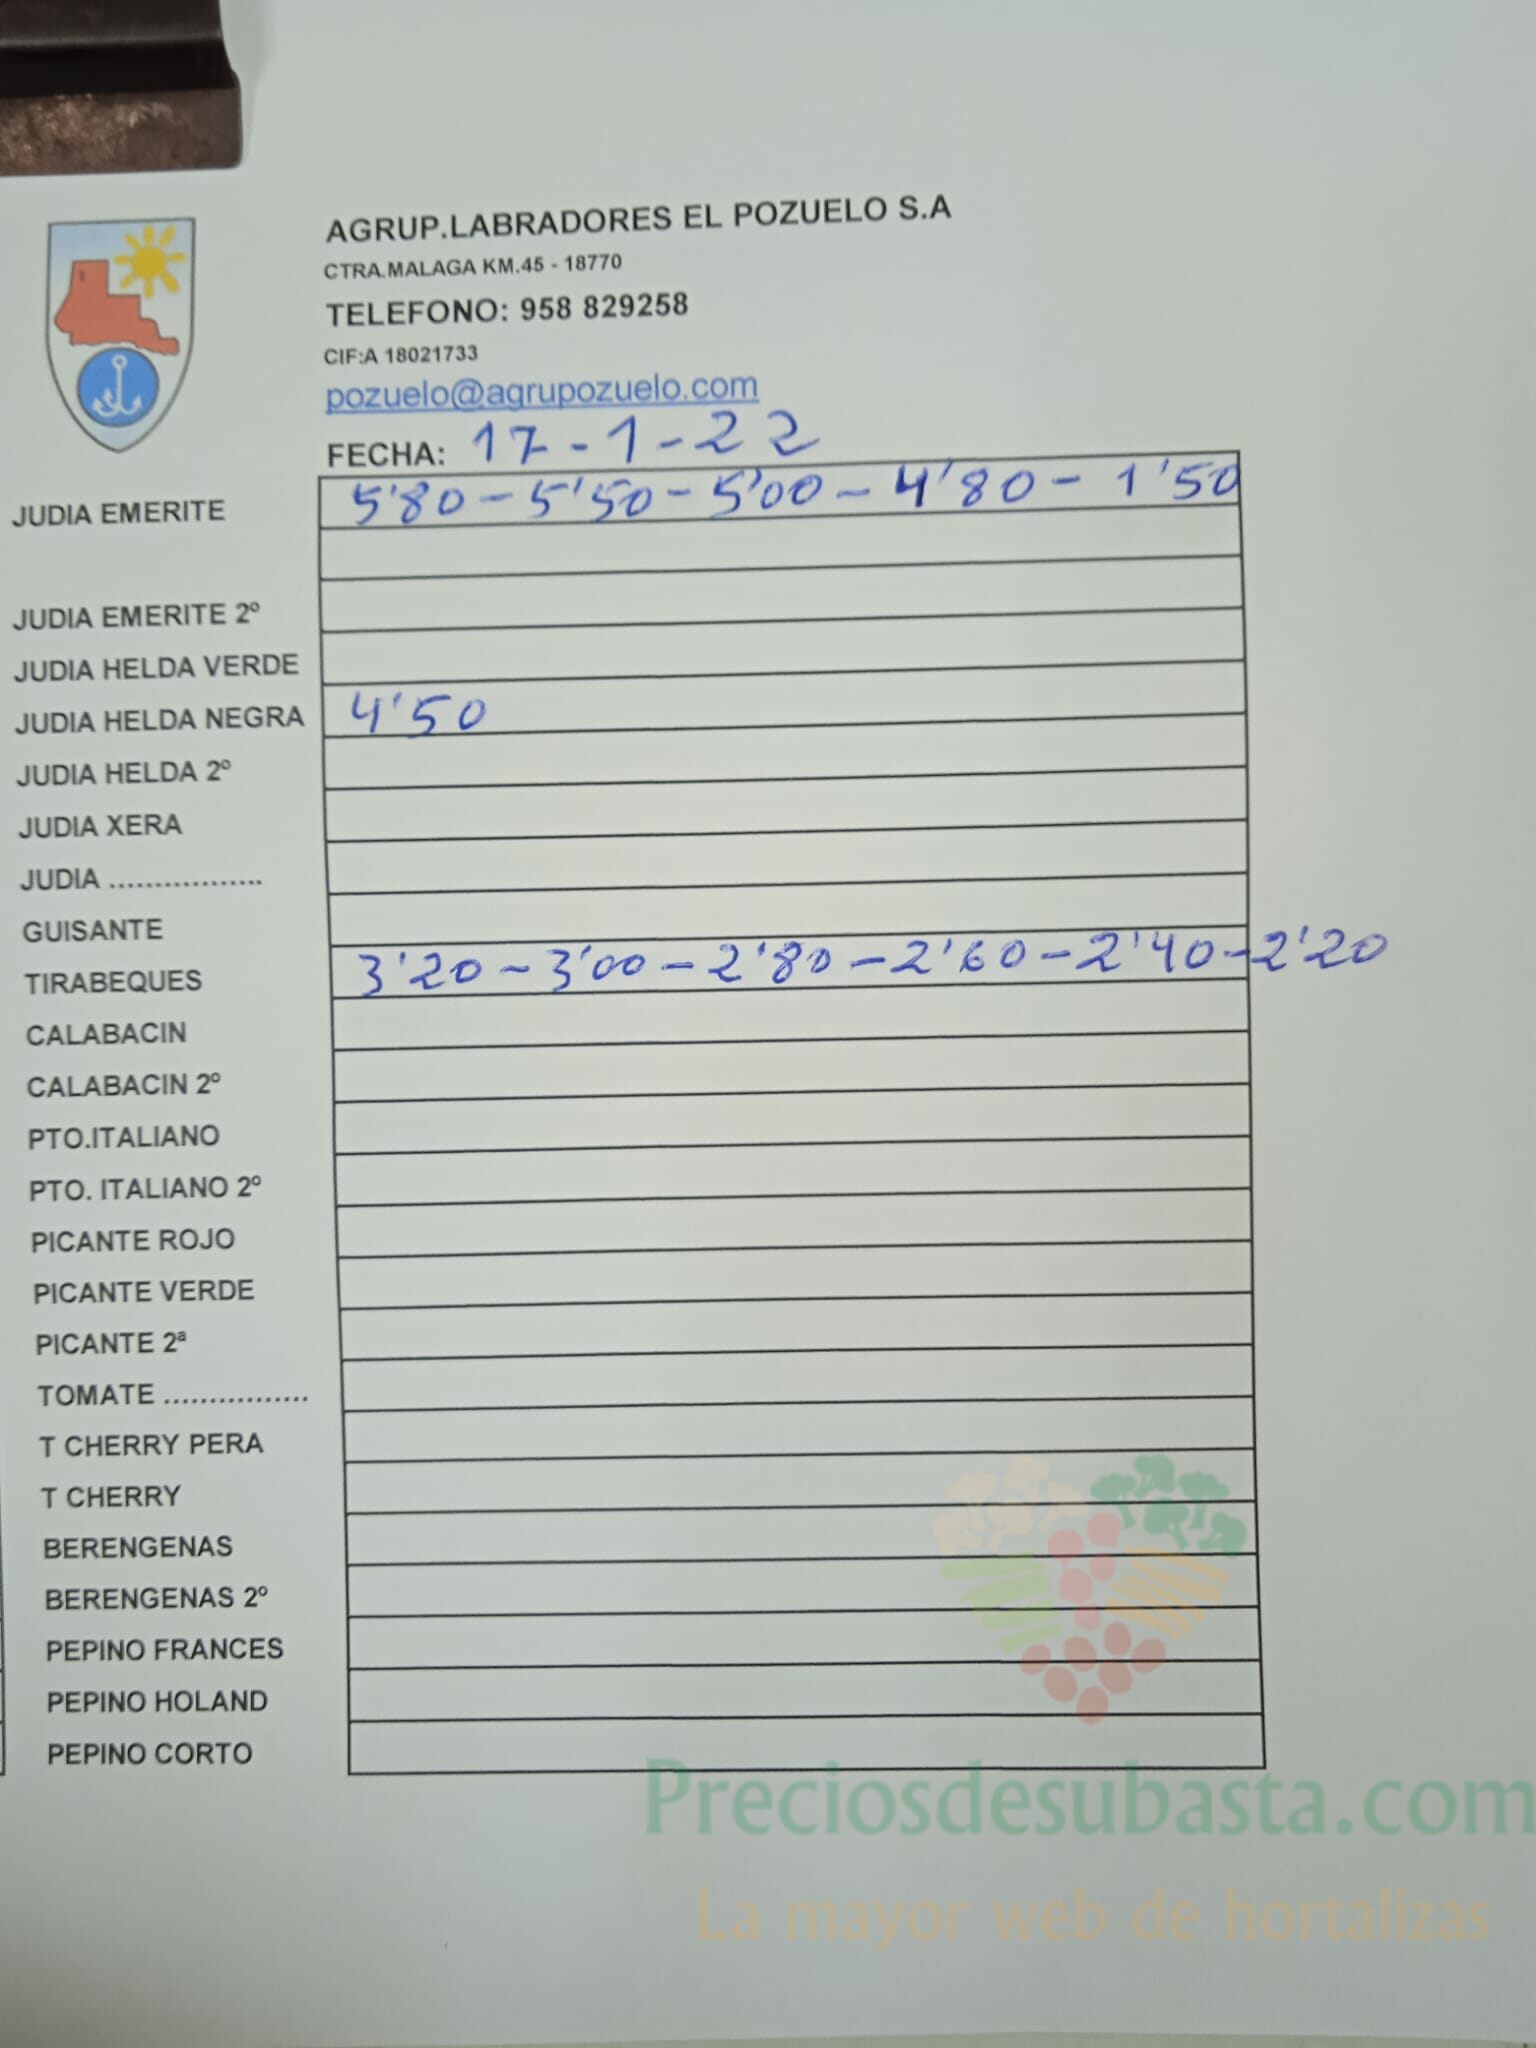 AGRUP.LABRADORES EL POZUELO S.A
CTRA.MALAGA KM.45 - 18770
TELEFONO: 958 829258
CIF:A 18021733
pozuelo@agrupozuelo.com
FECHA: 17-1-22
JUDIA EMERITE 5'80 - 5'50 - 5'00 - 4'80 - 1'50
JUDIA EMERITE 2º
JUDIA HELDA VERDE
JUDIA HELDA NEGRA 4'50
JUDIA HELDA 2º
JUDIA XERA
JUDIA .................
GUISANTE
TIRABEQUES 3'20 - 3'00 - 2'80 - 2'60 - 2'40 - 2'20
CALABACIN
CALABACIN 2º
PTO.ITALIANO
PTO. ITALIANO 2º
PICANTE ROJO
PICANTE VERDE
PICANTE 2ª
TOMATE ................
T CHERRY PERA
T CHERRY
BERENGENAS
BERENGENAS 2º
PEPINO FRANCES
PEPINO HOLAND
PEPINO CORTO
Preciosdesubasta.com
La mayor web de hortalizas